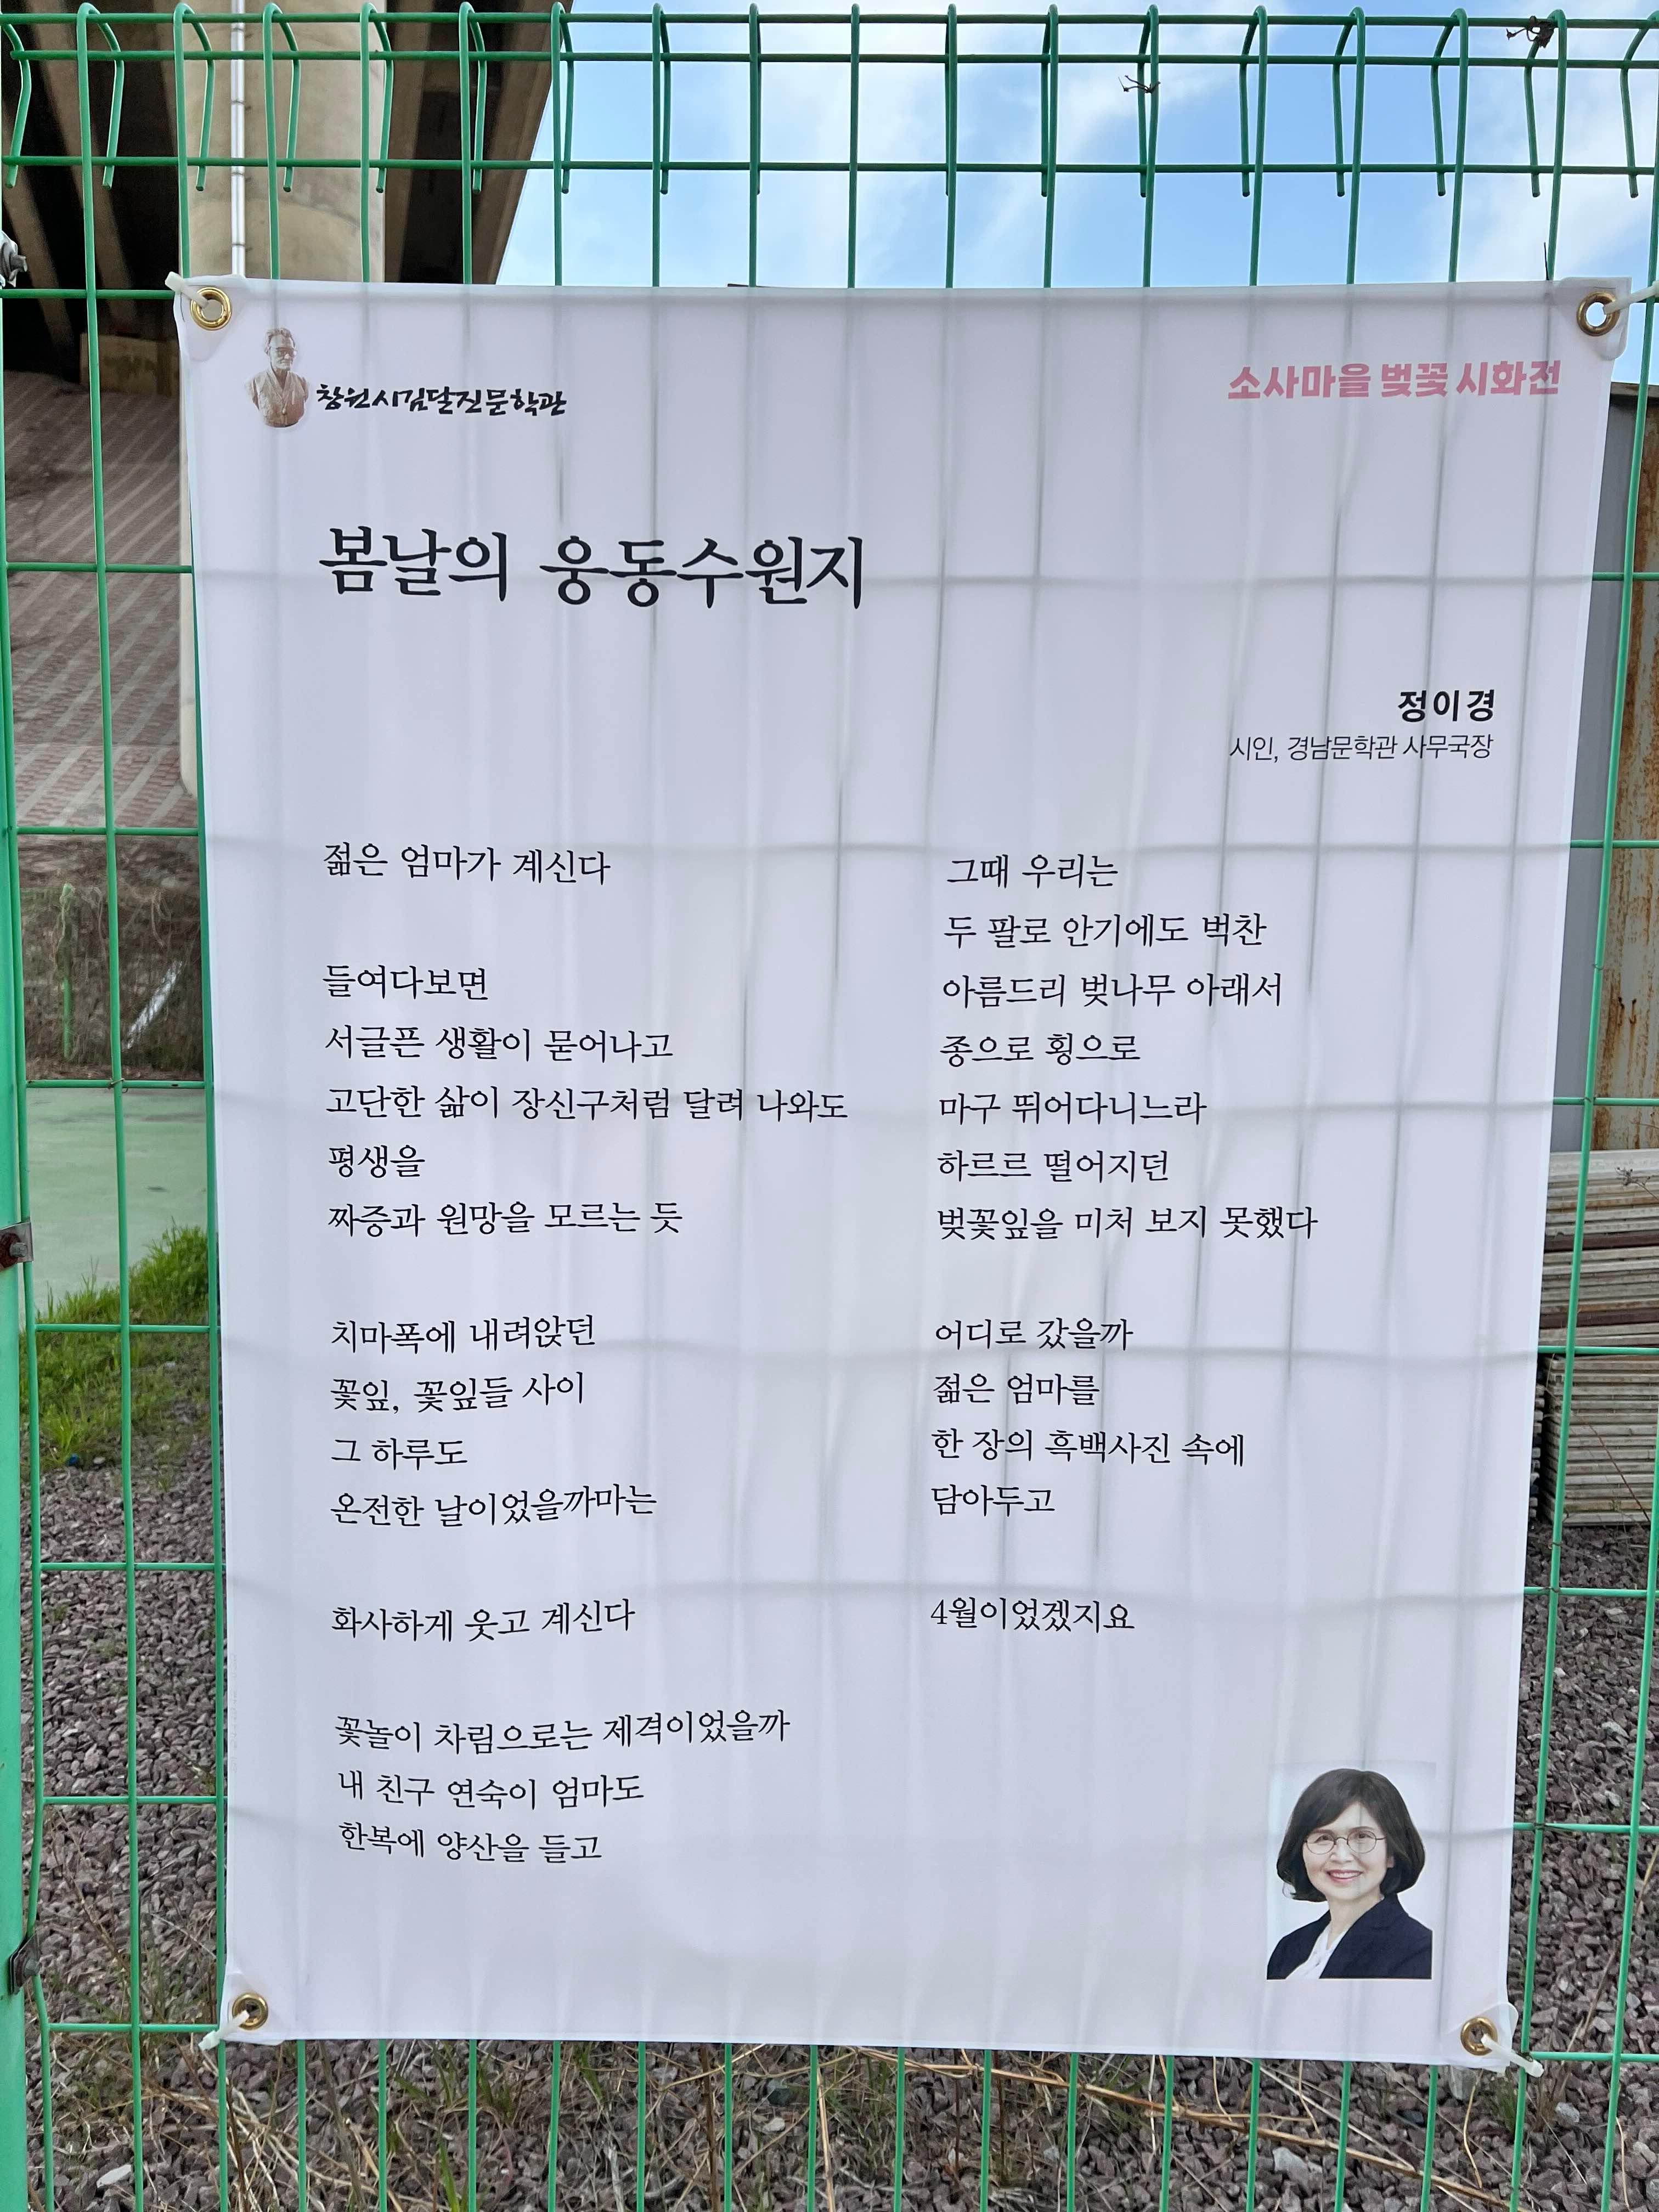 창원시김달진문학관
소사마을 벚꽃 시화전
봄날의 웅동수원지
정이경
시인, 경남문학관 사무국장
젊은 엄마가 계신다
들여다보면
서글픈 생활이 묻어나고
고단한 삶이 장신구처럼 달려 나와도
평생을
짜증과 원망을 모르는 듯
치마폭에 내려앉던
꽃잎, 꽃잎들 사이
그 하루도
온전한 날이었을까마는
화사하게 웃고 계신다
꽃놀이 차림으로는 제격이었을까
내 친구 연숙이 엄마도
한복에 양산을 들고
그때 우리는
두 팔로 안기에도 벅찬
아름드리 벚나무 아래서
종으로 횡으로
마구 뛰어다니느라
하르르 떨어지던
벚꽃잎을 미처 보지 못했다
어디로 갔을까
젊은 엄마를
한 장의 흑백사진 속에
담아두고
4월이었겠지요